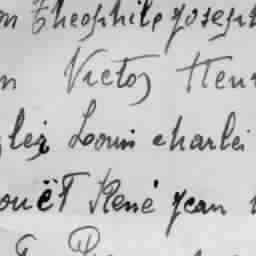 on Théophile Joseph
n Victor Henr
les Louis charles
ouët René jean